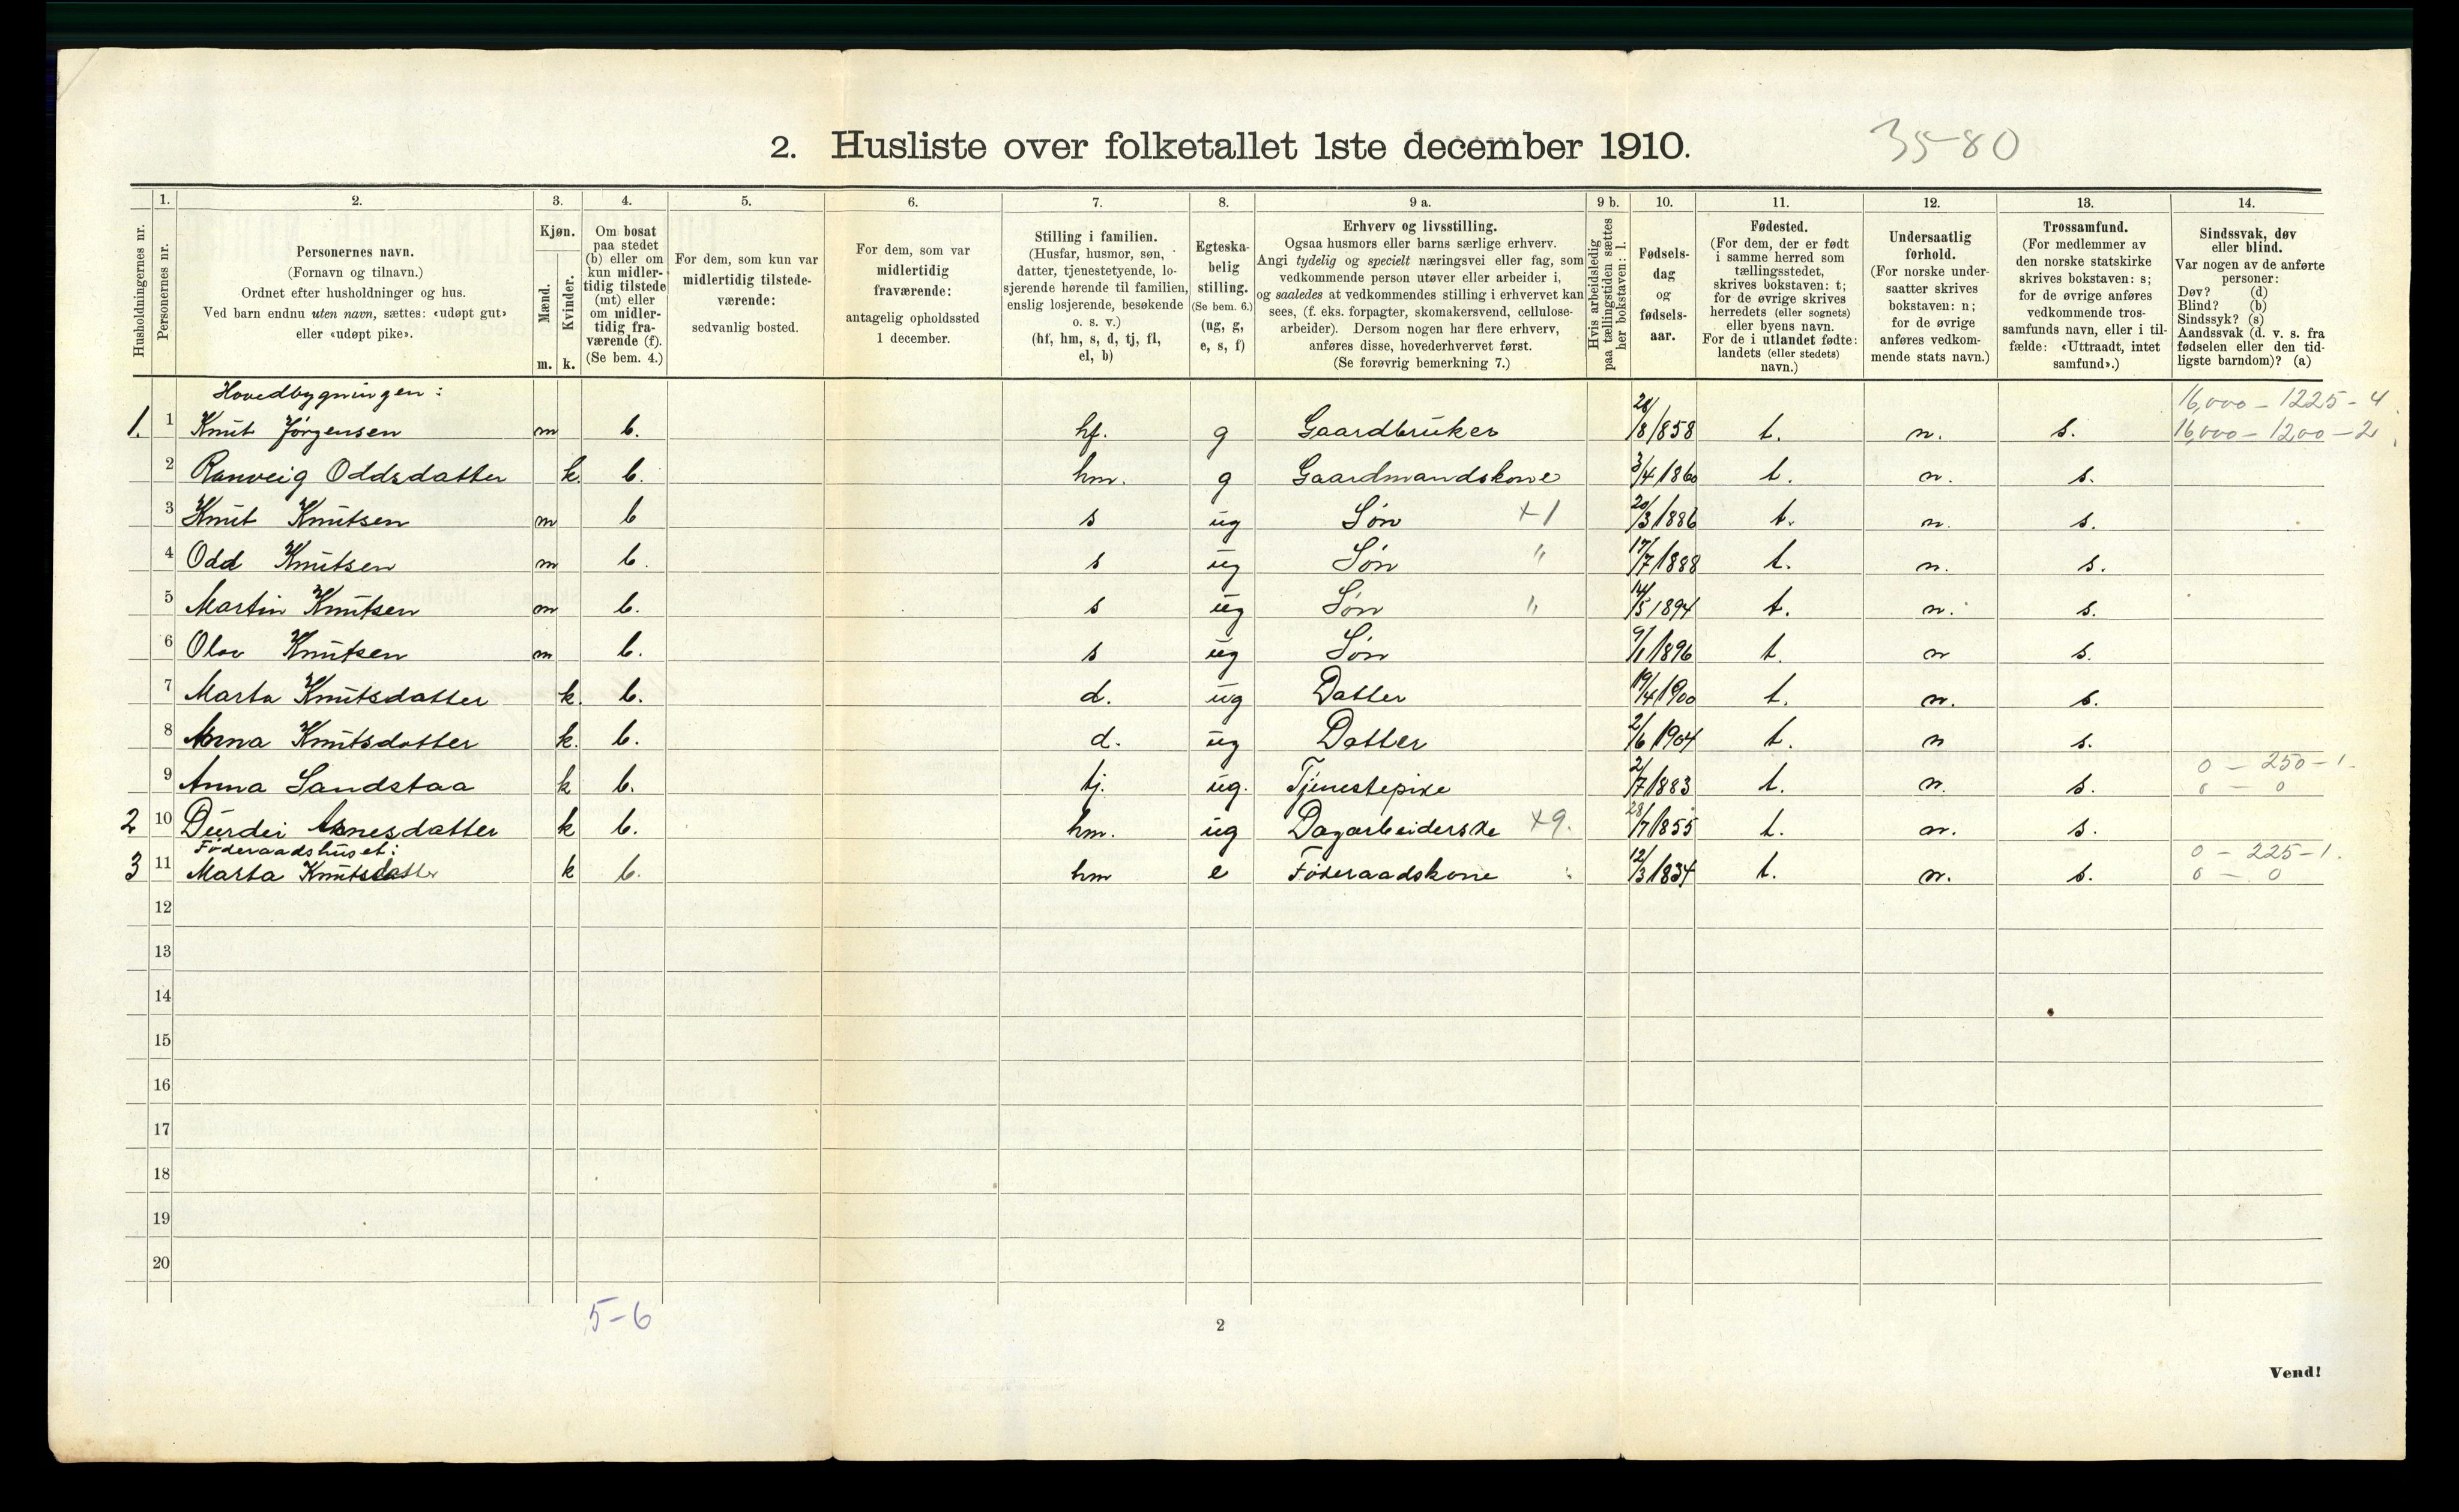 2. Husliste over folketallet 1ste december 1910. 35-80
Husholdningernes nr.
1. Personernes nr.
2. Personernes navn. (Fornavn og tilnavn.) Ordnet efter husholdninger og hus. Ved barn endnu uten navn, sættes: «udøpt gut» eller «udøpt pike».
3. Kjøn. Mænd. m. Kvinder. k.
4. Om bosat paa stedet (b) eller om kun midlertidig tilstede (mt) eller om midlertidig fraværende (f). (Se bem. 4.)
5. For dem, som kun var midlertidig tilstedeværende: sedvanlig bosted.
6. For dem, som var midlertidig fraværende: antagelig opholdssted 1 december.
7. Stilling i familien. (Husfar, husmor, søn, datter, tjenestetyende, losjerende hørende til familien, enslig losjerende, besøkende o. s. v.) (hf, hm, s, d, tj, fl, el, b)
8. Egteskabelig stilling. (Se bem. 6.) (ug, g, e, s, f)
9 a. Erhverv og livsstilling. Ogsaa husmors eller barns særlige erhverv. Angi tydelig og specielt næringsvei eller fag, som vedkommende person utøver eller arbeider i, og saaledes at vedkommendes stilling i erhvervet kan sees, (f. eks. forpagter, skomakersvend, cellulosearbeider). Dersom nogen har flere erhverv, anføres disse, hovederhvervet først. (Se forøvrig bemerkning 7.)
9 b. Hvis arbeidsledig paa tællingstiden sættes her bokstaven: l.
10. Fødselsdag og fødselsaar.
11. Fødested. (For dem, der er født i samme herred som tællingsstedet, skrives bokstaven: t; for de øvrige skrives herredets (eller sognets) eller byens navn. For de i utlandet fødte: landets (eller stedets) navn.)
12. Undersaatlig forhold. (For norske undersaatter skrives bokstaven: n; for de øvrige anføres vedkommende stats navn.)
13. Trossamfund. (For medlemmer av den norske statskirke skrives bokstaven: s; for de øvrige anføres vedkommende trossamfunds navn, eller i tilfælde: «Uttraadt, intet samfund».)
14. Sindssvak, døv eller blind. Var nogen av de anførte personer: Døv? (d) Blind? (b) Sindssyk? (s) Aandssvak (d. v. s. fra fødselen eller den tidligste barndom)? (a)
Hovedbygningen: 16,000 - 1225 - 4
1. 1 Knut Jørgensen m b. hf. g Gaardbruker 28/8/858 t. n. s. 16,000 - 1200 - 2
2 Ranveig Oddsdatter k. b. hm. g Gaardmandskone 3/4 1860 t. n. s.
3 Knut Knutsen m b s ug Søn +1 20/3 1886 t. n. s.
4 Odd Knutsen m b. s ug Søn " 17/7 1888 t. n. s.
5 Martin Knutsen m b. s ug Søn " 14/5 1894 t. n. s.
6 Olav Knutsen m b. s ug Søn 9/1 1896 t. n s.
7 Marta Knutsdatter k. b. d. ug Datter 19/4 1900 t. n. s.
8 Anna Knutsdotter k. b. d. ug Datter 2/6 1904 t. n s.
0 - 250 - 1.
9 Anna Sandstaa k b. tj. ug. Tjenestepike 2/7 1883 t. n. s. 0 - 0
2 10 Durdei Arnesdatter k b. hm. ug Dagarbeiderske +9. 28/7 1855 t. n. s.
Føderaadshuset: 0 - 225 - 1.
3 11 Marta Knutsdatter k b. hm e Føderaadskone 12/3 1834 t. n. s. 0 - 0
12
13
14
15
16
17
18
19
20
5-6
2
Vend!